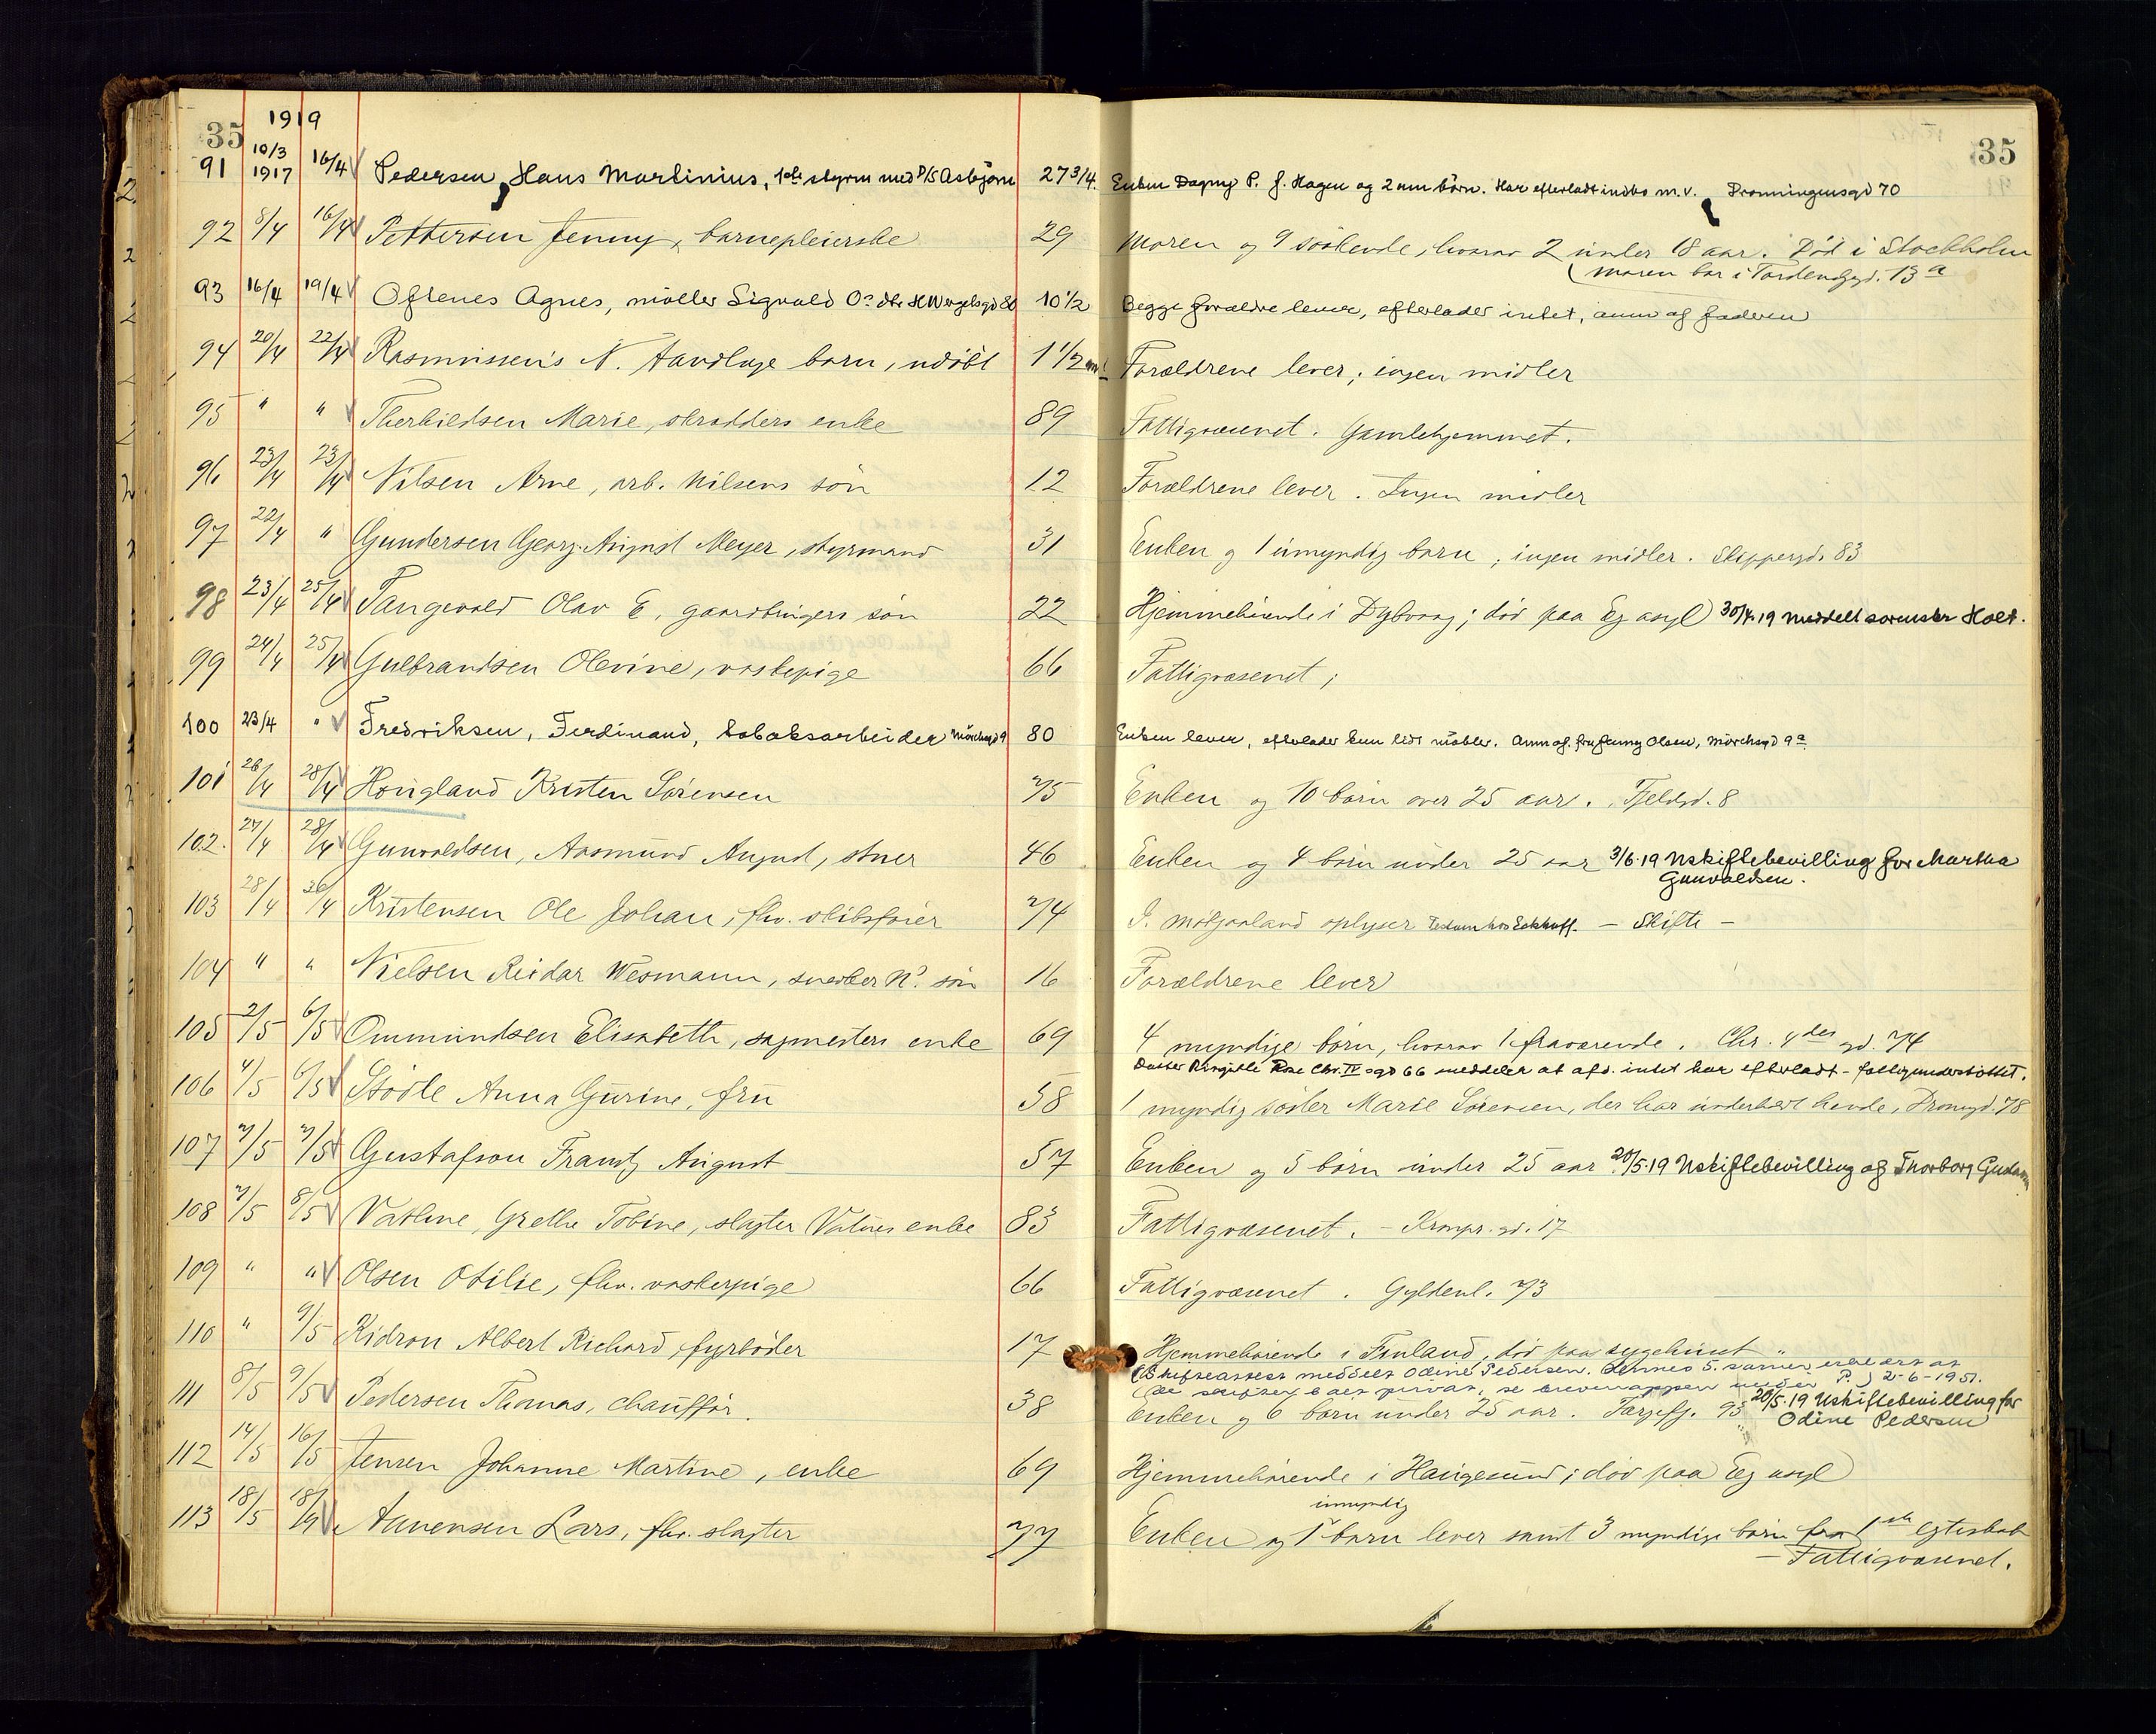 35 1919 35
91 10/3 1917 16/4 Pedersen, Hans Martinius, 1ste styrm med D/S Asbjørn 27 3/4. Enken Dagny P. f. Hagen og 2 um börn. Har efterladt indbo m.v. Dronningensgd 70
92 8/4 16/4 Pettersen Jenny, barnepleierske 29 Moren og 9 søskende, hvorav 2 under 18 aar. Död i Stockholm
(moren bor i Tordensgd. 13 a
93 16/4 19/4 Oftenes Agnes, möller Sigvald O's dtr H Wergelsgd 80 10 1/2 Begge forældre lever, efterlader intet, anm af faderen
94 20/4 22/4 Rasmussen's N. Tandlæge barn, udöbt 1 1/2 Forældrene lever; ingen midler
95 " " Therkildsen Marie, skrædders enke 89 Fattigvæsenet. Gamlehjemmet.
96 23/4 23/4 Nilsen Arne, arb. Nilsens sön 12 Forældrene lever. Ingen midler
97 22/4 " Gundersen Georg August Meyer, styrmand 31 Enken og 1 umyndig barn; ingen midler. Skippergd. 83
98 23/4 25/4 Tangevald Olav E, gaardbrugers sön 22 Hjemmehörende i Dybvaag; död paa Eg asyl 30/4.19 meddelt sorenskr Holt.
99 24/4 25/4 Gulbrandsen Olevine, vaskepige 66 Fattigvæsenet;
100 23/4 " Fredriksen, Ferdinand, tobaksarbeider Mörchsgd 9 80 Enken lever, efterlader kun lidt möbler. Anm af. fru Jenny Olsen, Mörchsgd 9 a
101 26/4 28/4 Hougland Kristen Sörensen 75 Enken og 10 börn over 25 aar. Fjeldgd. 8
102. 27/4 28/4 Gunvaldsen, Aasmund August, stuer 46 Enken og 4 börn under 25 aar 3/6.19 Uskiftebevilling for Martha
Gunvaldsen.
103 28/4 30/4 Kristensen Ole Johan, fhv. skibsförer 74 J. Motjaaland oplyser Testam hos Eckhoff. — Skifte —
104 " " Nielsen Reidar Wesmann, snedker N's sön 16 Forældrene lever
105 2/5 6/5 Ommundsen Elisabeth, sagmesters enke 69 4 myndige börn, hvorav 1 fraværende. Chr. 4des gd. 74
Datter Ringitte Rae Chr. IV sgd 66 meddeler at afd. intet har efterladt - fattigunderstöttet.
106 4/5 6/5 Stödle Anna Gurine, fru 58 1 myndig söster Marie Sörensen, der har underholdt hende, Dronngd. 78
107 7/5 7/5 Gustafson Frantz August 57 Enken og 5 börn under 25 aar 20/5.19 Uskiftebevilling af Thorborg
108 7/5 8/5 Vathne, Grethe Tobine, slagter Vatnes enke 83 Fattigvæsenet. - Kronpr. gd. 17
109 " " Olsen Otilie, fhv. vaskerpige 66 Fattigvæsenet. Gyldenl. 73
110 " 9/5 Kidron Albert Richard, fyrböder 17 Hjemmehörende i Finland, död paa sygehuset "
(Skifteattest meddelt Odine Pedersen. Hennes 5. sønner erklært at
de skiftet alt privat, se brevmappen under P.) 2-6-1951.
111 8/5 9/5 Pedersen Thomas, chauffør. 38 Enken og 6 börn under 25 aar. Torjefj. 95 20/5.19 Uskiftebevilling for
Odine Pedersen
112 14/5 16/5 Jensen Johanne Martine, enke 69 Hjemmehörende i Haugesund; död paa Eg asyl
umyndig
113 18/5 Aanensen Lars, fhv. slagter 77 Enken og 1 barn lever samt 3 myndige börn fra 1ste egteskab
— Fattigvæsenet.